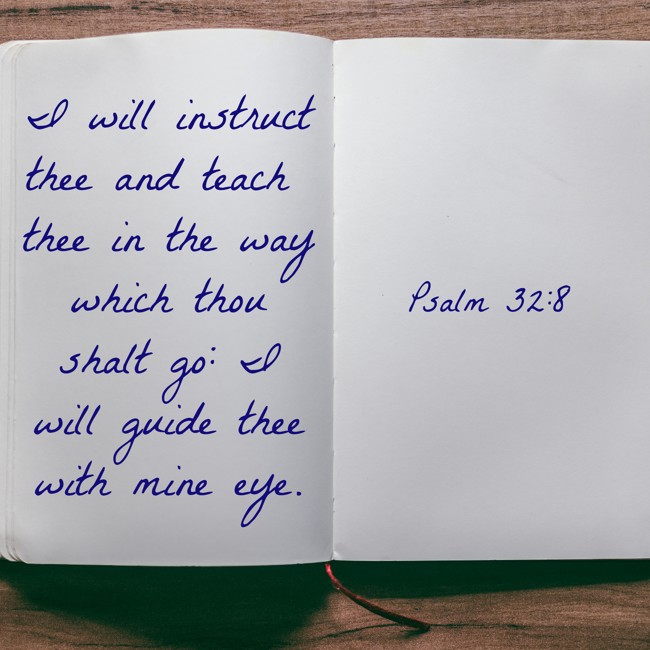 I will instruct
thee and teach
thee in the way
which thou
shalt go: I
will guide thee
with mine eye.
Psalm 32:8